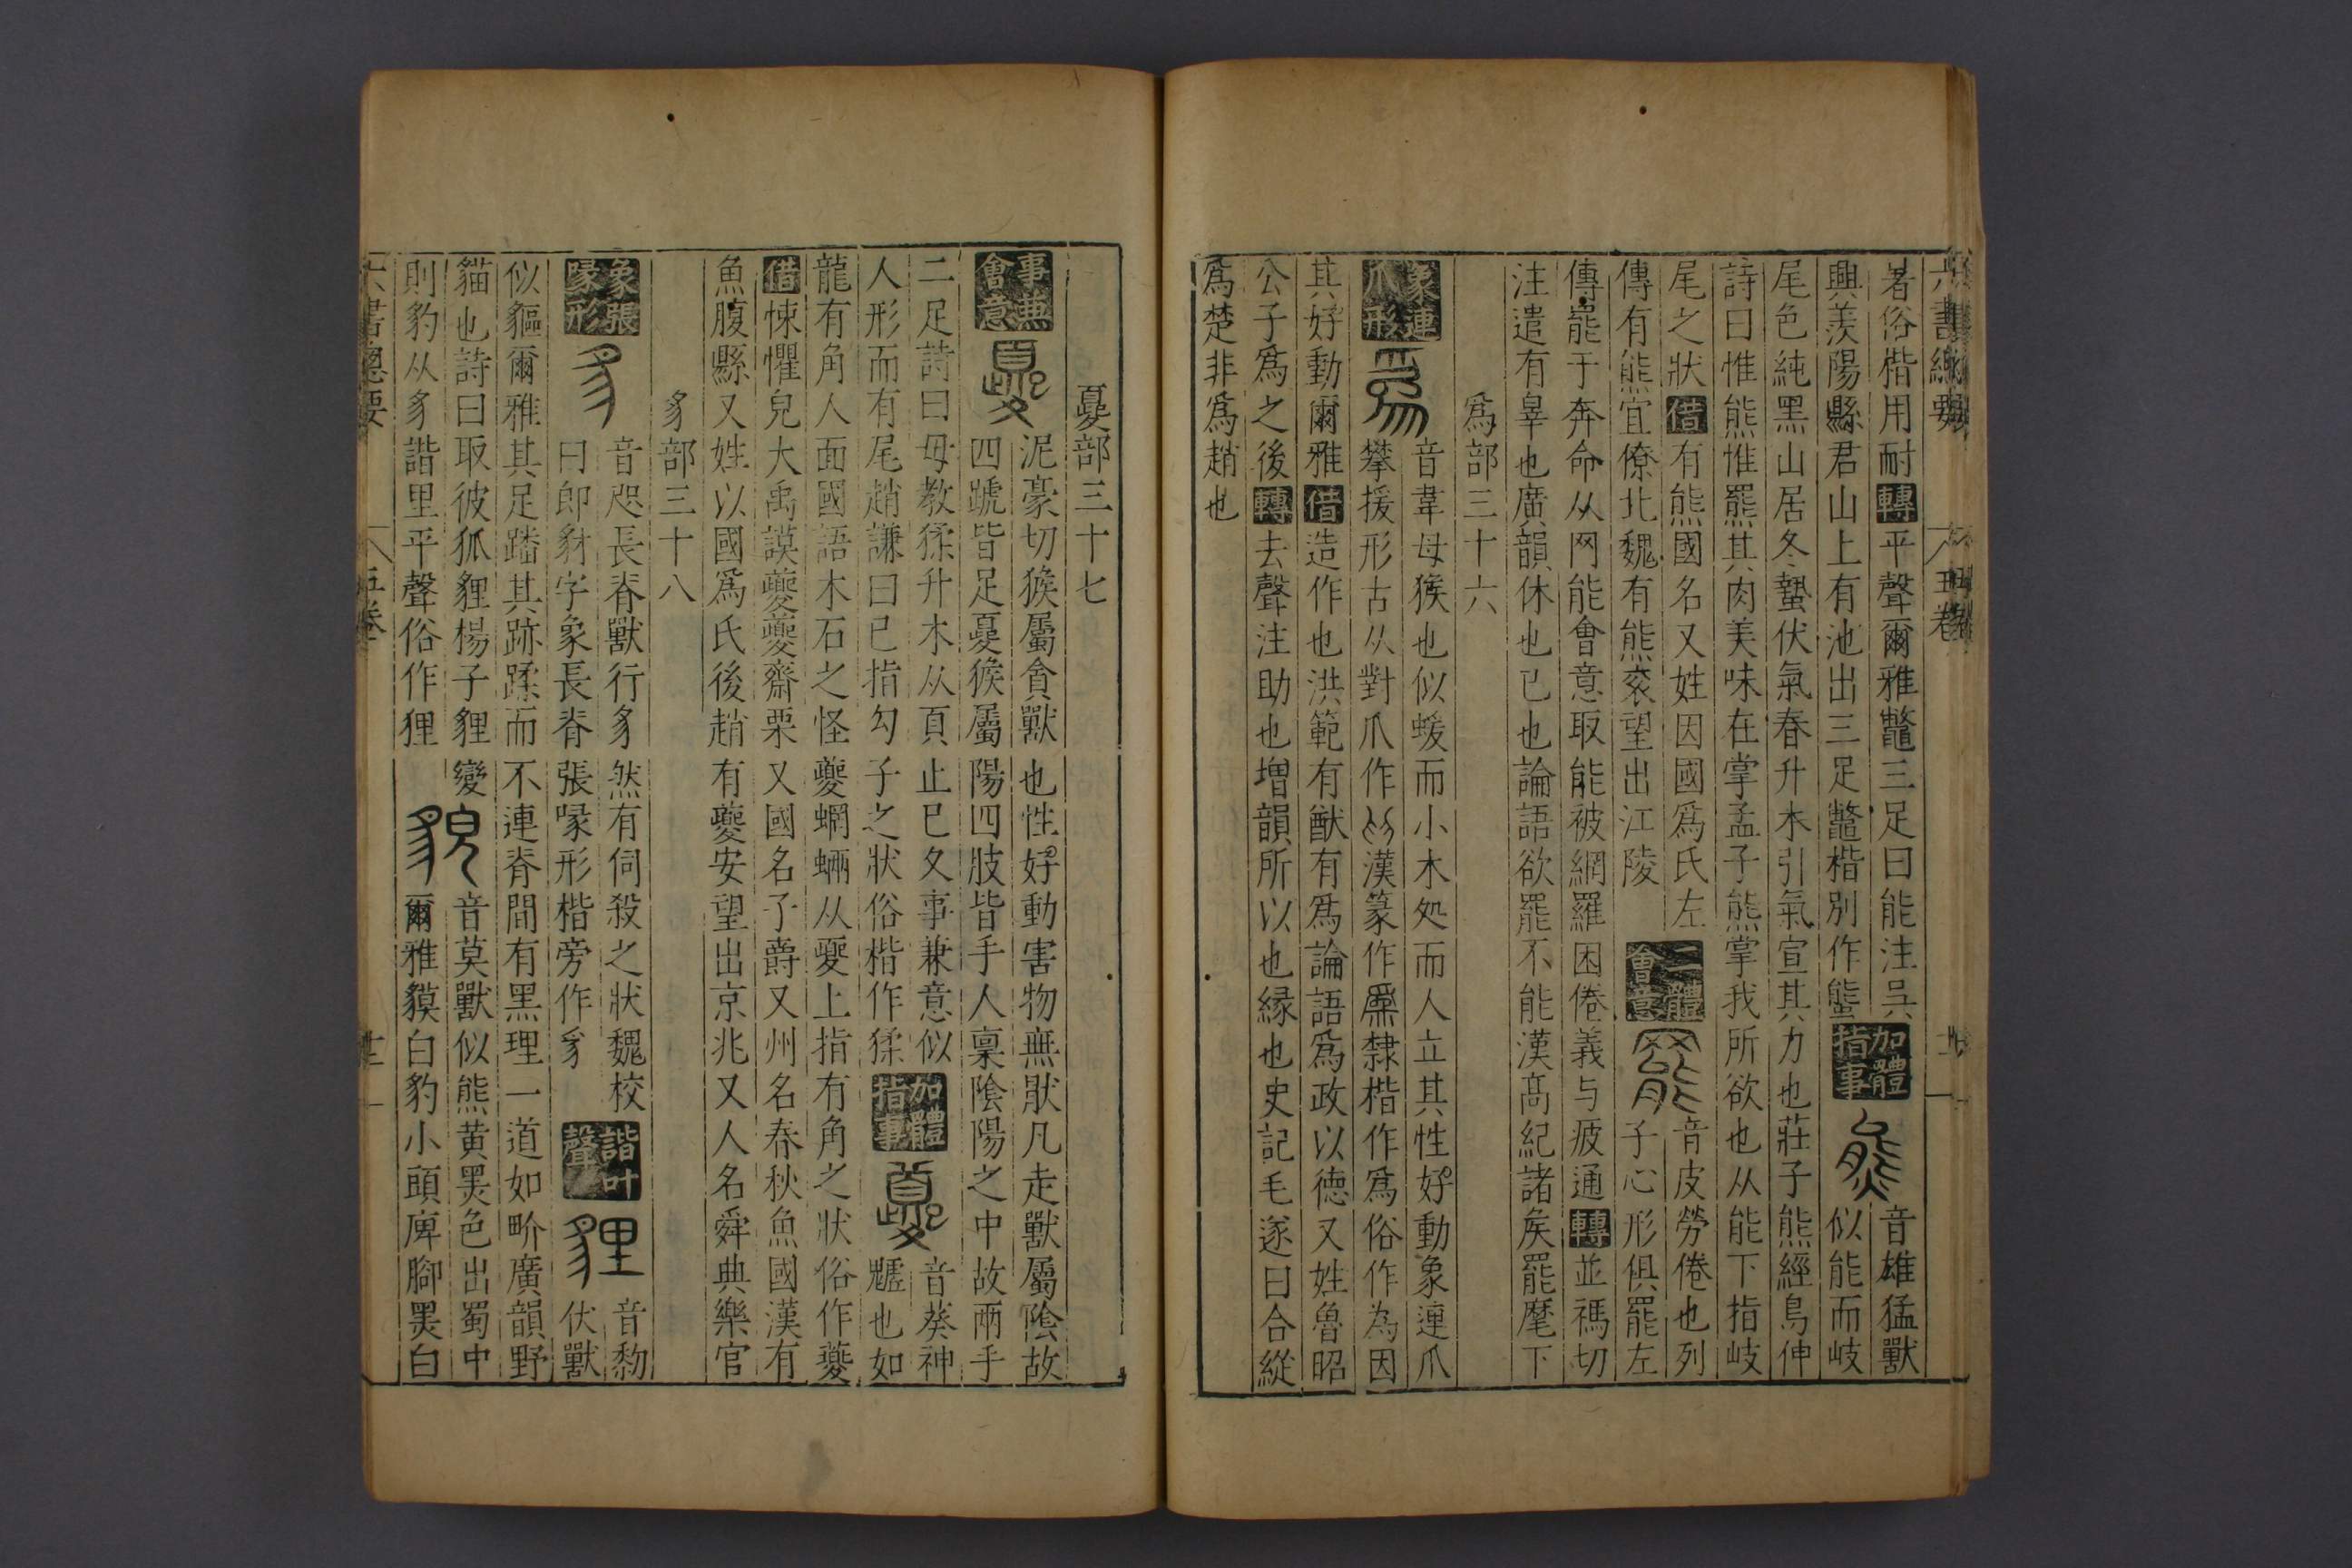 六書緫要 五卷
者俗楷用耐轉平聲爾雅鼈三足曰能注吳
興羨陽縣君山上有池出三足鼈楷別作䏻加體指事 音雄猛獸似能而岐
尾色純黑山居冬蟄伏氣春升木引氣宣其力也莊子熊經鳥伸
詩曰惟熊惟羆其肉美味在掌孟子熊掌我所欲也从能下指岐
尾之狀借有熊國名又姓因國爲氏左
傳有熊宜僚北魏有熊袞望出江陵二體會意 音皮勞倦也列子心形俱罷左
傳罷于奔命从网能會意取能被網羅困倦義与疲通轉並禡切
注遣有辠也廣韻休也已也論語欲罷不能漢髙紀諸矦罷麾下
爲部三十六
象連爪形 爲 音韋母猴也似蝯而小木处而人立其性好動象連爪
攀援形古从對爪作漢篆作爲隸楷作爲俗作為因
其好動爾雅借造作也洪範有猷有爲論語爲政以德又姓魯昭
公子爲之後轉去聲注助也增韻所以也緣也史記毛遂曰合縱
爲楚非爲趙也
夒部三十七
事兼會意 夒 泥豪切猴屬貪獸也性好動害物無猒凡走獸屬陰故
四蹏皆足夒猴屬陽四肢皆手人稟陰陽之中故兩手
二足詩曰毋教猱升木从頁止巳夂事兼意似
人形而有尾趙謙曰巳指勾子之狀俗楷作猱加體指事 夔 音葵神魖也如
龍有角人面國語木石之怪夔蝄蜽从夒上指有角之狀俗作夔
借悚懼皃大禹謨夔夔齋栗又國名子爵又州名春秋魚國漢有
魚腹縣又姓以國爲氏後趙有夔安望出京兆又人名舜典樂官
豸部三十八
象張喙形 豸 音咫長脊獸行豸然有伺殺之狀魏校
曰即豺字象長脊張喙形楷旁作豸諧叶聲 貍 音𠩺伏獸
似貙爾雅其足蹯其跡蹂而不連脊間有黑理一道如畍廣韻野
貓也詩曰取彼狐貍楊子貍變
則豹从豸諧里平聲俗作狸 貌 音莫獸似熊黄黑色出蜀中
爾雅貘白豹小頭庳腳黑白
六書緫要 五卷